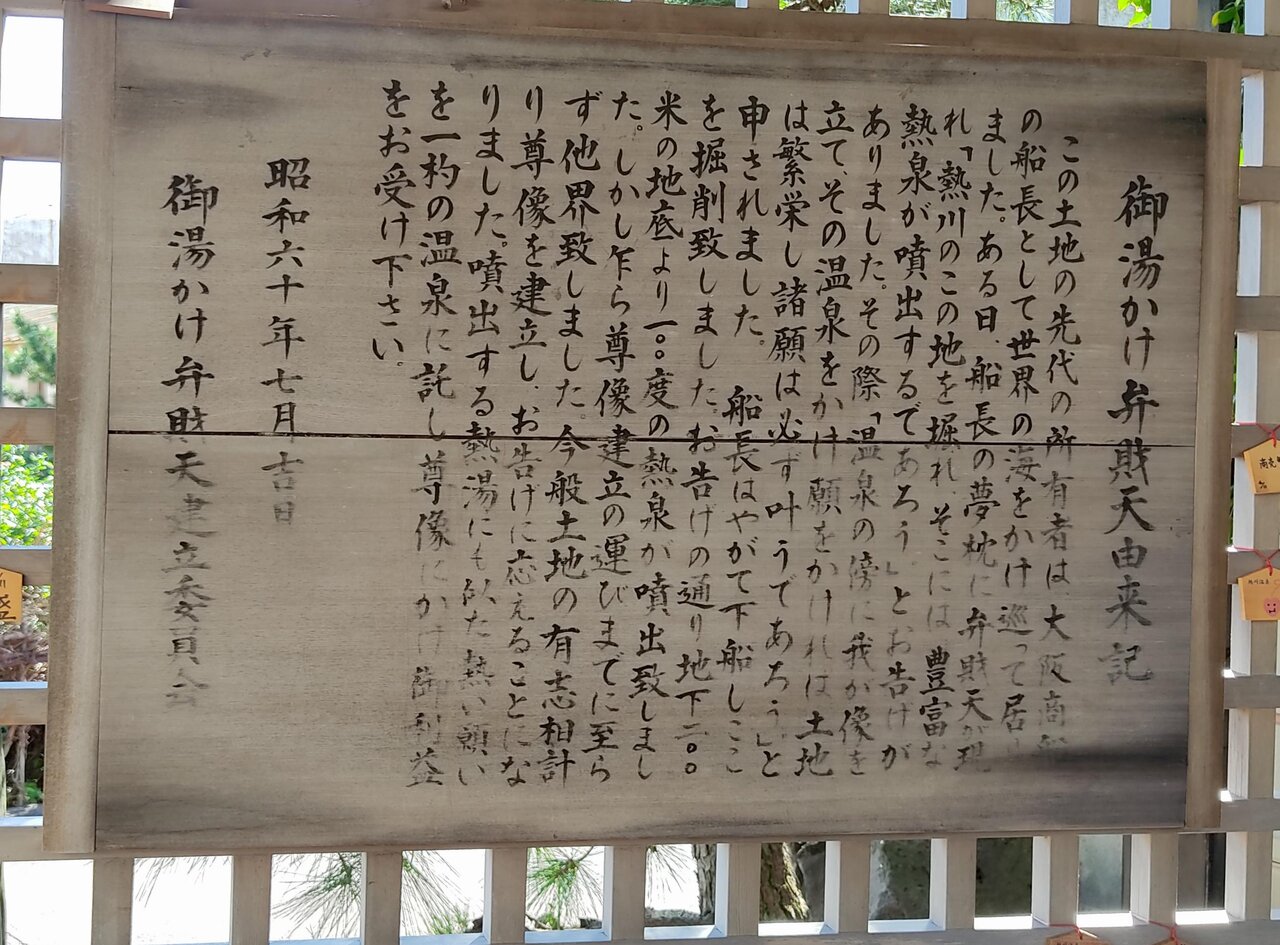 御湯かけ弁財天由来記
この土地の先代の所有者は大阪商船
の船長として世界の海をかけ巡って居り
ました。ある日、船長の夢枕に弁財天が現
れ「熱川のこの地を掘れ、そこには豊富な
熱泉が噴出するであろう」とお告げが
ありました。その際「温泉の傍に我が像を
立て、その温泉をかけ願をかければ土地
は繁栄し諸願は必ず叶うであろう」と
申されました。 船長はやがて下船しここ
を掘削致しました。お告げの通り地下二〇〇
米の地底より一〇〇度の熱泉が噴出致しまし
た。しかし乍ら尊像建立の運びまでに至ら
ず他界致しました。今般土地の有志相計
り尊像を建立し、お告げに応えることにな
りました。噴出する熱湯にも似た熱い願い
を一杓の温泉に託し尊像にかけ御利益
をお受け下さい。
昭和六十年七月吉日
御湯かけ弁財天建立委員会